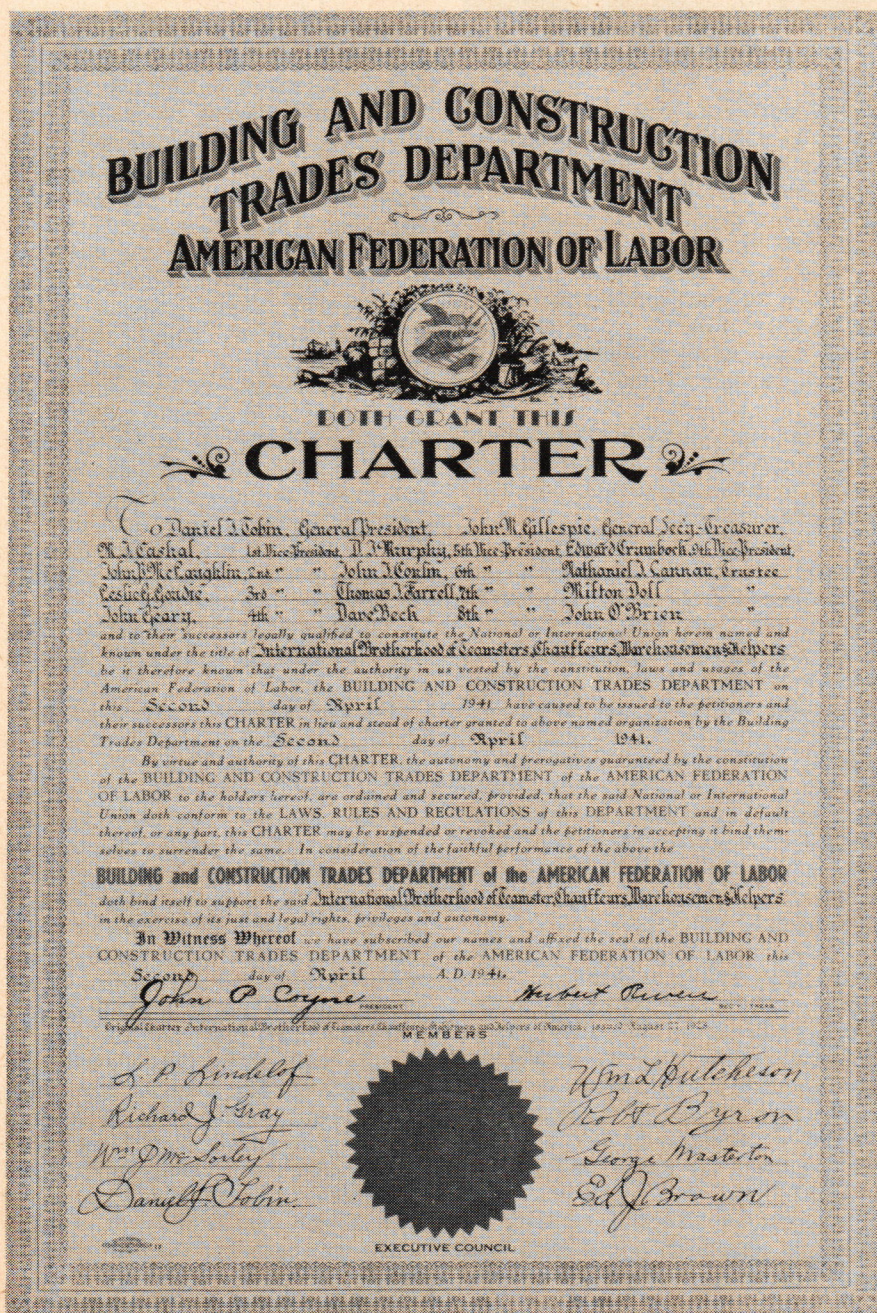 BUILDING AND CONSTRUCTION
TRADES DEPARTMENT
AMERICAN FEDERATION OF LABOR
DOTH GRANT THIS
CHARTER
To Daniel J. Tobin, General President, John M. Gillespie, General Sec'y.-Treasurer,
M. J. Cashal, 1st Vice-President, D. J. Murphy, 5th Vice-President, Edward Crumbock, 9th Vice-President,
John P. McLaughlin, 2nd " " John J. Conlin, 6th " " Nathaniel J. Cannan, Trustee
Leslie G. Goudie, 3rd " " Thomas J. Farrell, 7th " " Milton Doll "
John Geary, 4th " " Dave Beck 8th " " John O'Brien "
and to their successors legally qualified to constitute the National or International Union herein named and
known under the title of International Brotherhood of Teamsters, Chauffeurs, Warehousemen & Helpers
be it therefore known that under the authority in us vested by the constitution, laws and usages of the
American Federation of Labor, the BUILDING AND CONSTRUCTION TRADES DEPARTMENT on
this Second day of April 1941 have caused to be issued to the petitioners and
their successors this CHARTER in lieu and stead of charter granted to above named organization by the Building
Trades Department on the Second day of April 1941.
By virtue and authority of this CHARTER, the autonomy and prerogatives guaranteed by the constitution
of the BUILDING AND CONSTRUCTION TRADES DEPARTMENT of the AMERICAN FEDERATION
OF LABOR to the holders hereof, are ordained and secured, provided, that the said National or International
Union doth conform to the LAWS, RULES AND REGULATIONS of this DEPARTMENT and in default
thereof, or any part, this CHARTER may be suspended or revoked and the petitioners in accepting it bind them-
selves to surrender the same. In consideration of the faithful performance of the above the
BUILDING and CONSTRUCTION TRADES DEPARTMENT of the AMERICAN FEDERATION OF LABOR
doth bind itself to support the said International Brotherhood of Teamster, Chauffeurs, Warehousemen & Helpers
in the exercise of its just and legal rights, privileges and autonomy.
In Witness Whereof we have subscribed our names and affixed the seal of the BUILDING AND
CONSTRUCTION TRADES DEPARTMENT of the AMERICAN FEDERATION OF LABOR this
Second day of April A. D. 1941.
John P Coyne PRESIDENT Herbert Rivers SEC'Y. TREAS.
Original Charter International Brotherhood of Teamsters, Chauffeurs, Stablemen and Helpers of America, issued August 27, 1928
MEMBERS
L. P. Lindelof Wm L Hutcheson
Richard J. Gray Robt Byron
Wm J McSorley George Masterton
Daniel J. Tobin Ed J Brown
EXECUTIVE COUNCIL